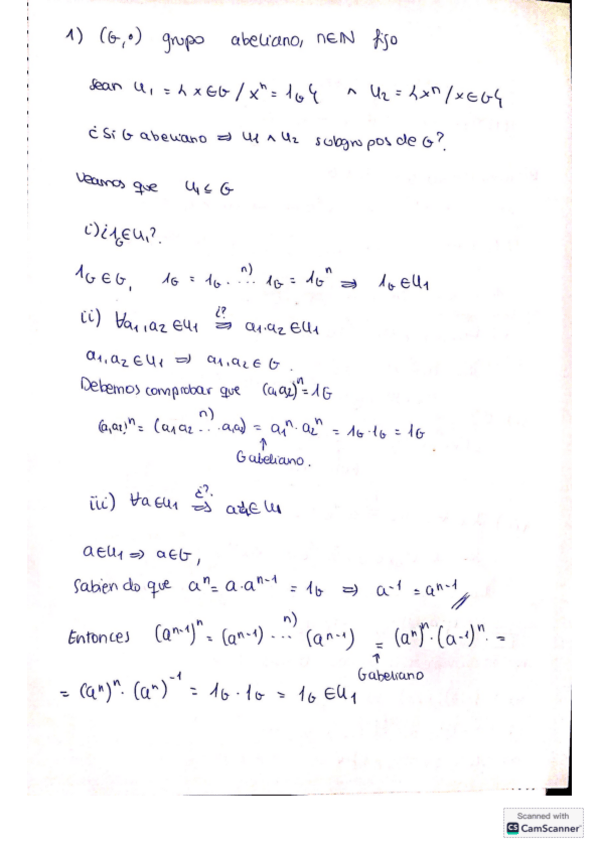 1) (G,·) grupo abeliano, n∈ℕ fijo
Sean U₁ = {x∈G / xⁿ = 1_G} ∧ U₂ = {xⁿ / x∈G}
¿Si G abeliano ⇒ U₁ ∧ U₂ subgrupos de G?
Veamos que U₁ ≤ G
i) ¿1_G∈U₁?
1_G ∈ G, 1_G = 1_G · n)... 1_G = 1_Gⁿ ⇒ 1_G ∈ U₁
ii) ∀a₁,a₂ ∈ U₁ ¿?⇒ a₁·a₂ ∈ U₁
a₁,a₂ ∈ U₁ ⇒ a₁,a₂ ∈ G.
Debemos comprobar que (a₁a₂)ⁿ = 1_G
(a₁a₂)ⁿ = (a₁a₂ n)... a₁a₂) = a₁ⁿ·a₂ⁿ = 1_G·1_G = 1_G
↑
G abeliano.
iii) ∀a∈U₁ ¿?⇒ a⁻¹∈U₁
a∈U₁ ⇒ a∈G,
Sabiendo que aⁿ = a·aⁿ⁻¹ = 1_G ⇒ a⁻¹ = aⁿ⁻¹ //
Entonces (aⁿ⁻¹)ⁿ = (aⁿ⁻¹) n)... (aⁿ⁻¹) = (aⁿ)ⁿ·(a⁻¹)ⁿ. =
↑
G abeliano
= (aⁿ)ⁿ·(aⁿ)⁻¹ = 1_G·1_G = 1_G ∈ U₁
Scanned with
CS CamScanner